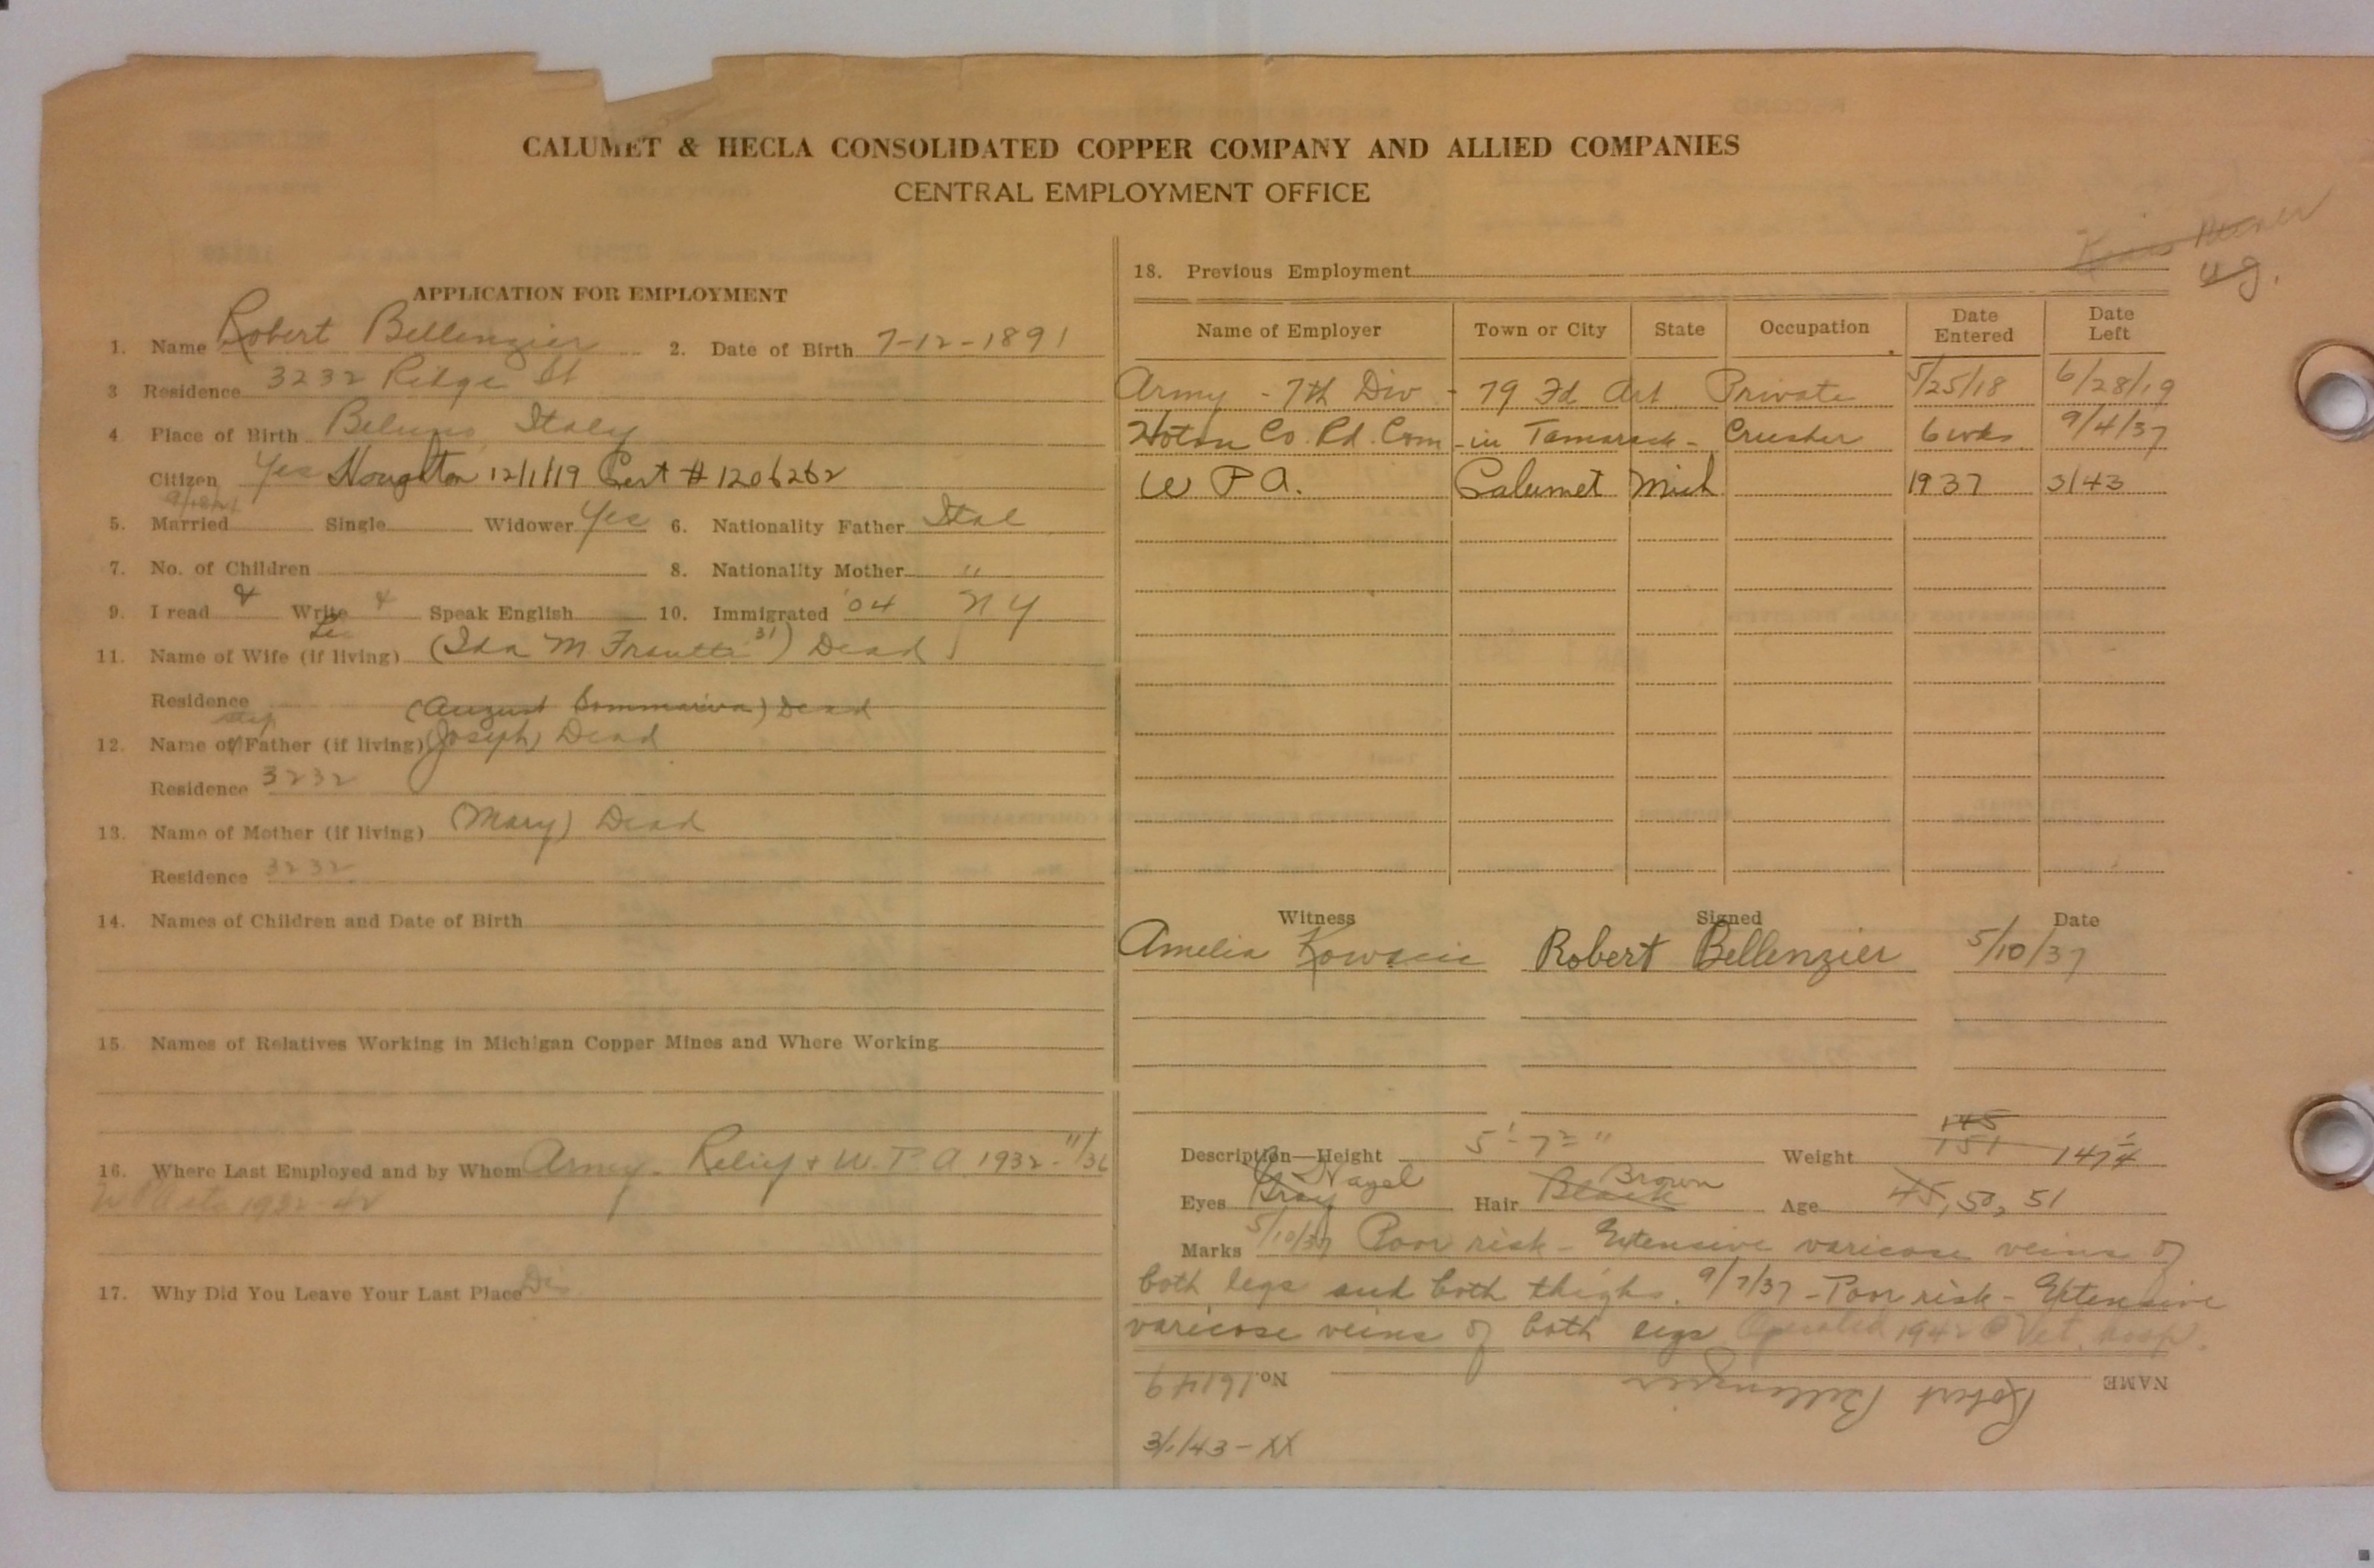 CALUMET & HECLA CONSOLIDATED COPPER COMPANY AND ALLIED COMPANIES
CENTRAL EMPLOYMENT OFFICE
APPLICATION FOR EMPLOYMENT
1. Name Robert Bellenzier 2. Date of Birth 7-12-1891
3 Residence 3232 Ridge St
4 Place of Birth Beluno Italy
Citizen Yes Houghton 12/1/19 Cert # 1206262
5. Married Single Widower Yes 6. Nationality Father Ital
7. No. of Children 8. Nationality Mother "
9. I read & Write & Speak English 10. Immigrated '04 NY
11. Name of Wife (if living) (Ida M 31) Dead
Residence (August Sommariva) Dead
step
12. Name of Father (if living) (Joseph) Dead
Residence 3232
13. Name of Mother (if living) (Mary) Dead
Residence 3232
14. Names of Children and Date of Birth
15. Names of Relatives Working in Michigan Copper Mines and Where Working
16. Where Last Employed and by Whom Army - Relief + W.P.A 1932-11/36
17. Why Did You Leave Your Last Place
ug.
18. Previous Employment
Name of Employer Town or City State Occupation Date Entered Date Left
Army - 7th Div - 79 Fd Art Private 5/25/18 6/28/19
Hoton Co. Rd. Com - in Tamarack - Crusher 6 wks 9/4/37
W P A. Calumet Mich 1937 3/43
Witness Signed Date
Amelia Robert Bellenzier 5/10/37
145
Description—Height 5'-7 2" Weight 151 147
Hazel Brown
Eyes Gray Hair Black Age 45, 50, 51
Marks 5/10/37 Poor risk - Extensive varicose veins of
both legs and both thighs. 9/7/37 - Poor risk - Extensive
varicose veins of both legs Operated 1942 @ Vet. hosp.
NAME Robert Bellenzier No. 16149
3/1/43 - XX